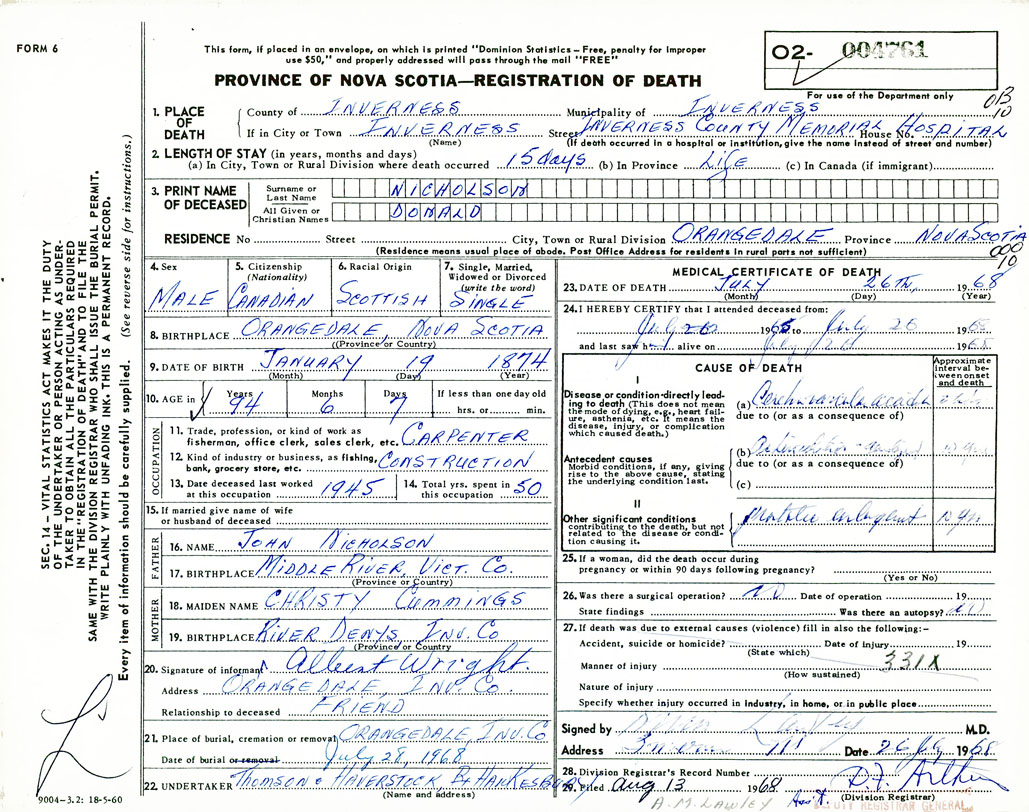 FORM 6
This form, if placed in an envelope, on which is printed "Dominion Statistics – Free, penalty for improper
use $50," and properly addressed will pass through the mail "FREE"
PROVINCE OF NOVA SCOTIA—REGISTRATION OF DEATH
02- 004761
For use of the Department only
013
10
1. PLACE OF DEATH
County of INVERNESS Municipality of INVERNESS
If in City or Town INVERNESS Street INVERNESS COUNTY MEMORIAL House No. HOSPITAL
(Name) (If death occurred in a hospital or institution, give the name instead of street and number)
2. LENGTH OF STAY (in years, months and days)
(a) In City, Town or Rural Division where death occurred 15 days (b) In Province LIFE (c) In Canada (if immigrant)
3. PRINT NAME OF DECEASED
Surname or Last Name NICHOLSON
All Given or Christian Names DONALD
RESIDENCE No Street City, Town or Rural Division ORANGEDALE Province NOVA SCOTIA
(Residence means usual place of abode. Post Office Address for residents in rural parts not sufficient)
000
10
4. Sex MALE
5. Citizenship (Nationality) CANADIAN
6. Racial Origin SCOTTISH
7. Single, Married, Widowed or Divorced (write the word) SINGLE
8. BIRTHPLACE ORANGEDALE, NOVA SCOTIA
(Province or Country)
9. DATE OF BIRTH JANUARY 19 1874
(Month) (Day) (Year)
10. AGE in Years 94 Months 6 Days 7 If less than one day old
hrs. or min.
OCCUPATION
11. Trade, profession, or kind of work as
fisherman, office clerk, sales clerk, etc. CARPENTER
12. Kind of industry or business, as fishing,
bank, grocery store, etc. CONSTRUCTION
13. Date deceased last worked
at this occupation 1945
14. Total yrs. spent in
this occupation 50
15. If married give name of wife
or husband of deceased
FATHER
16. NAME JOHN NICHOLSON
17. BIRTHPLACE MIDDLE RIVER, VICT. CO.
(Province or Country)
MOTHER
18. MAIDEN NAME CHRISTY CUMMINGS
19. BIRTHPLACE RIVER DENYS, INV. CO
(Province or Country)
20. Signature of informant Albert Wright.
Address ORANGEDALE, INV. CO.
Relationship to deceased FRIEND
21. Place of burial, cremation or removal ORANGEDALE, INV. CO
Date of burial or removal July 28, 1968
22. UNDERTAKER THOMSON & HAVERSTOCK, PT HAWKESBURY
(Name and address)
MEDICAL CERTIFICATE OF DEATH
23. DATE OF DEATH JULY 26TH, 1968
(Month) (Day) (Year)
24. I HEREBY CERTIFY that I attended deceased from:
19 to July 26 19
and last saw h alive on July 19
CAUSE OF DEATH
Approximate interval between onset and death
I
Disease or condition directly leading to death (This does not mean the mode of dying, e.g., heart failure, asthenia, etc. It means the disease, injury, or complication which caused death.)
(a)
due to (or as a consequence of)
Antecedent causes
Morbid conditions, if any, giving rise to the above cause, stating the underlying condition last.
(b)
due to (or as a consequence of)
(c)
II
Other significant conditions
contributing to the death, but not related to the disease or condition causing it.
10 yrs
25. If a woman, did the death occur during
pregnancy or within 90 days following pregnancy?
(Yes or No)
26. Was there a surgical operation? NO Date of operation 19
State findings Was there an autopsy? NO
27. If death was due to external causes (violence) fill in also the following:–
Accident, suicide or homicide? Date of injury 19
(State which)
Manner of injury 331X
(How sustained)
Nature of injury
Specify whether injury occurred in industry, in home, or in public place
Signed by M.D.
Address Date 26 July 1968
28. Division Registrar's Record Number
29. Filed Aug 13 1968
(Division Registrar)
A. M. LAWLEY Ass't. DEPUTY REGISTRAR GENERAL
SEC. 14 – VITAL STATISTICS ACT MAKES IT THE DUTY
OF THE UNDERTAKER OR PERSON ACTING AS UNDER-
TAKER TO OBTAIN ALL THE PARTICULARS REQUIRED
IN THE "REGISTRATION OF DEATH" AND TO FILE THE
SAME WITH THE DIVISION REGISTRAR WHO SHALL ISSUE THE BURIAL PERMIT.
WRITE PLAINLY WITH UNFADING INK. THIS IS A PERMANENT RECORD.
Every item of information should be carefully supplied. (See reverse side for instructions.)
9004–3.2: 18-5-60